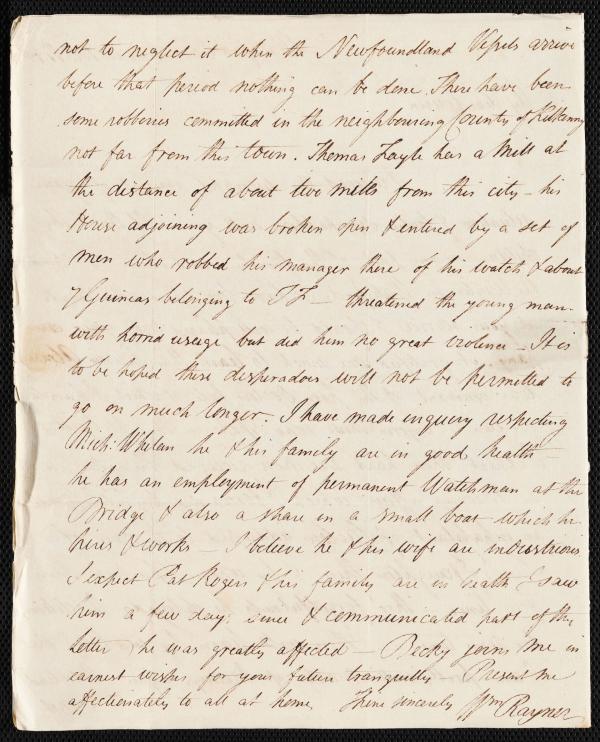 not to neglect it when the Newfoundland Vessels arrive
before that period nothing can be done. There have been
some robberies committed in the neighbouring County of Kilkenny
not far from this town. Thomas Fayle has a Mill at
the distance of about two miles from this city - his
House adjoining was broken open & entered by a set of
men who robbed his manager there of his watch & about
7 Guineas belonging to T F — threatened the young man
with horrid usage but did him no great violence - It is
to be hoped these desperadoes will not be permitted to
go on much longer. I have made inquiry respecting
Mich: Whelan he & his family are in good health -
he has an employment of permanent Watchman at the
Bridge & also a share in a small boat which he
hires & works - I believe he & his wife are industrious
I expect Pat Rogers & his family are in health I saw
him a few days since & communicated part of thy
Letter he was greatly affected - Becky joins me in
earnest wishes for your future tranquility Present me
affectionately to all at home, Thine sincerely Wm Rayner